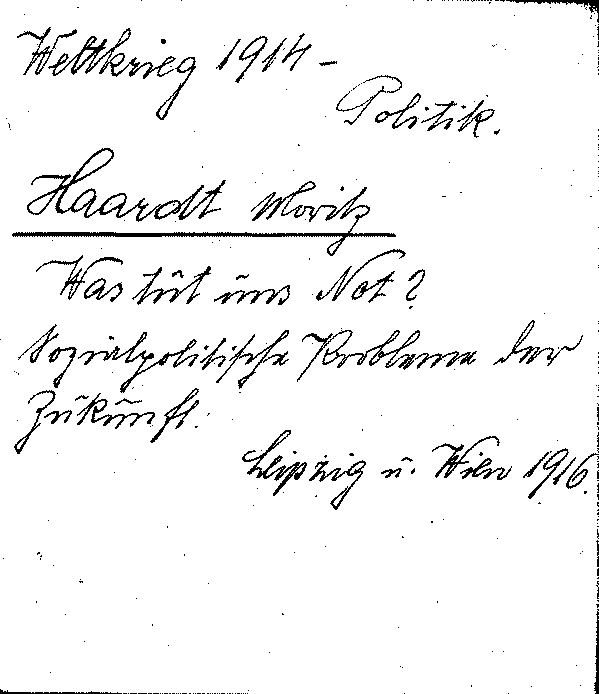 Weltkrieg 1914 –
Politik.
Haardt Moritz
Was tut uns Not?
Sozialpolitische Probleme der
Zukunft.
Leipzig u. Wien 1916.